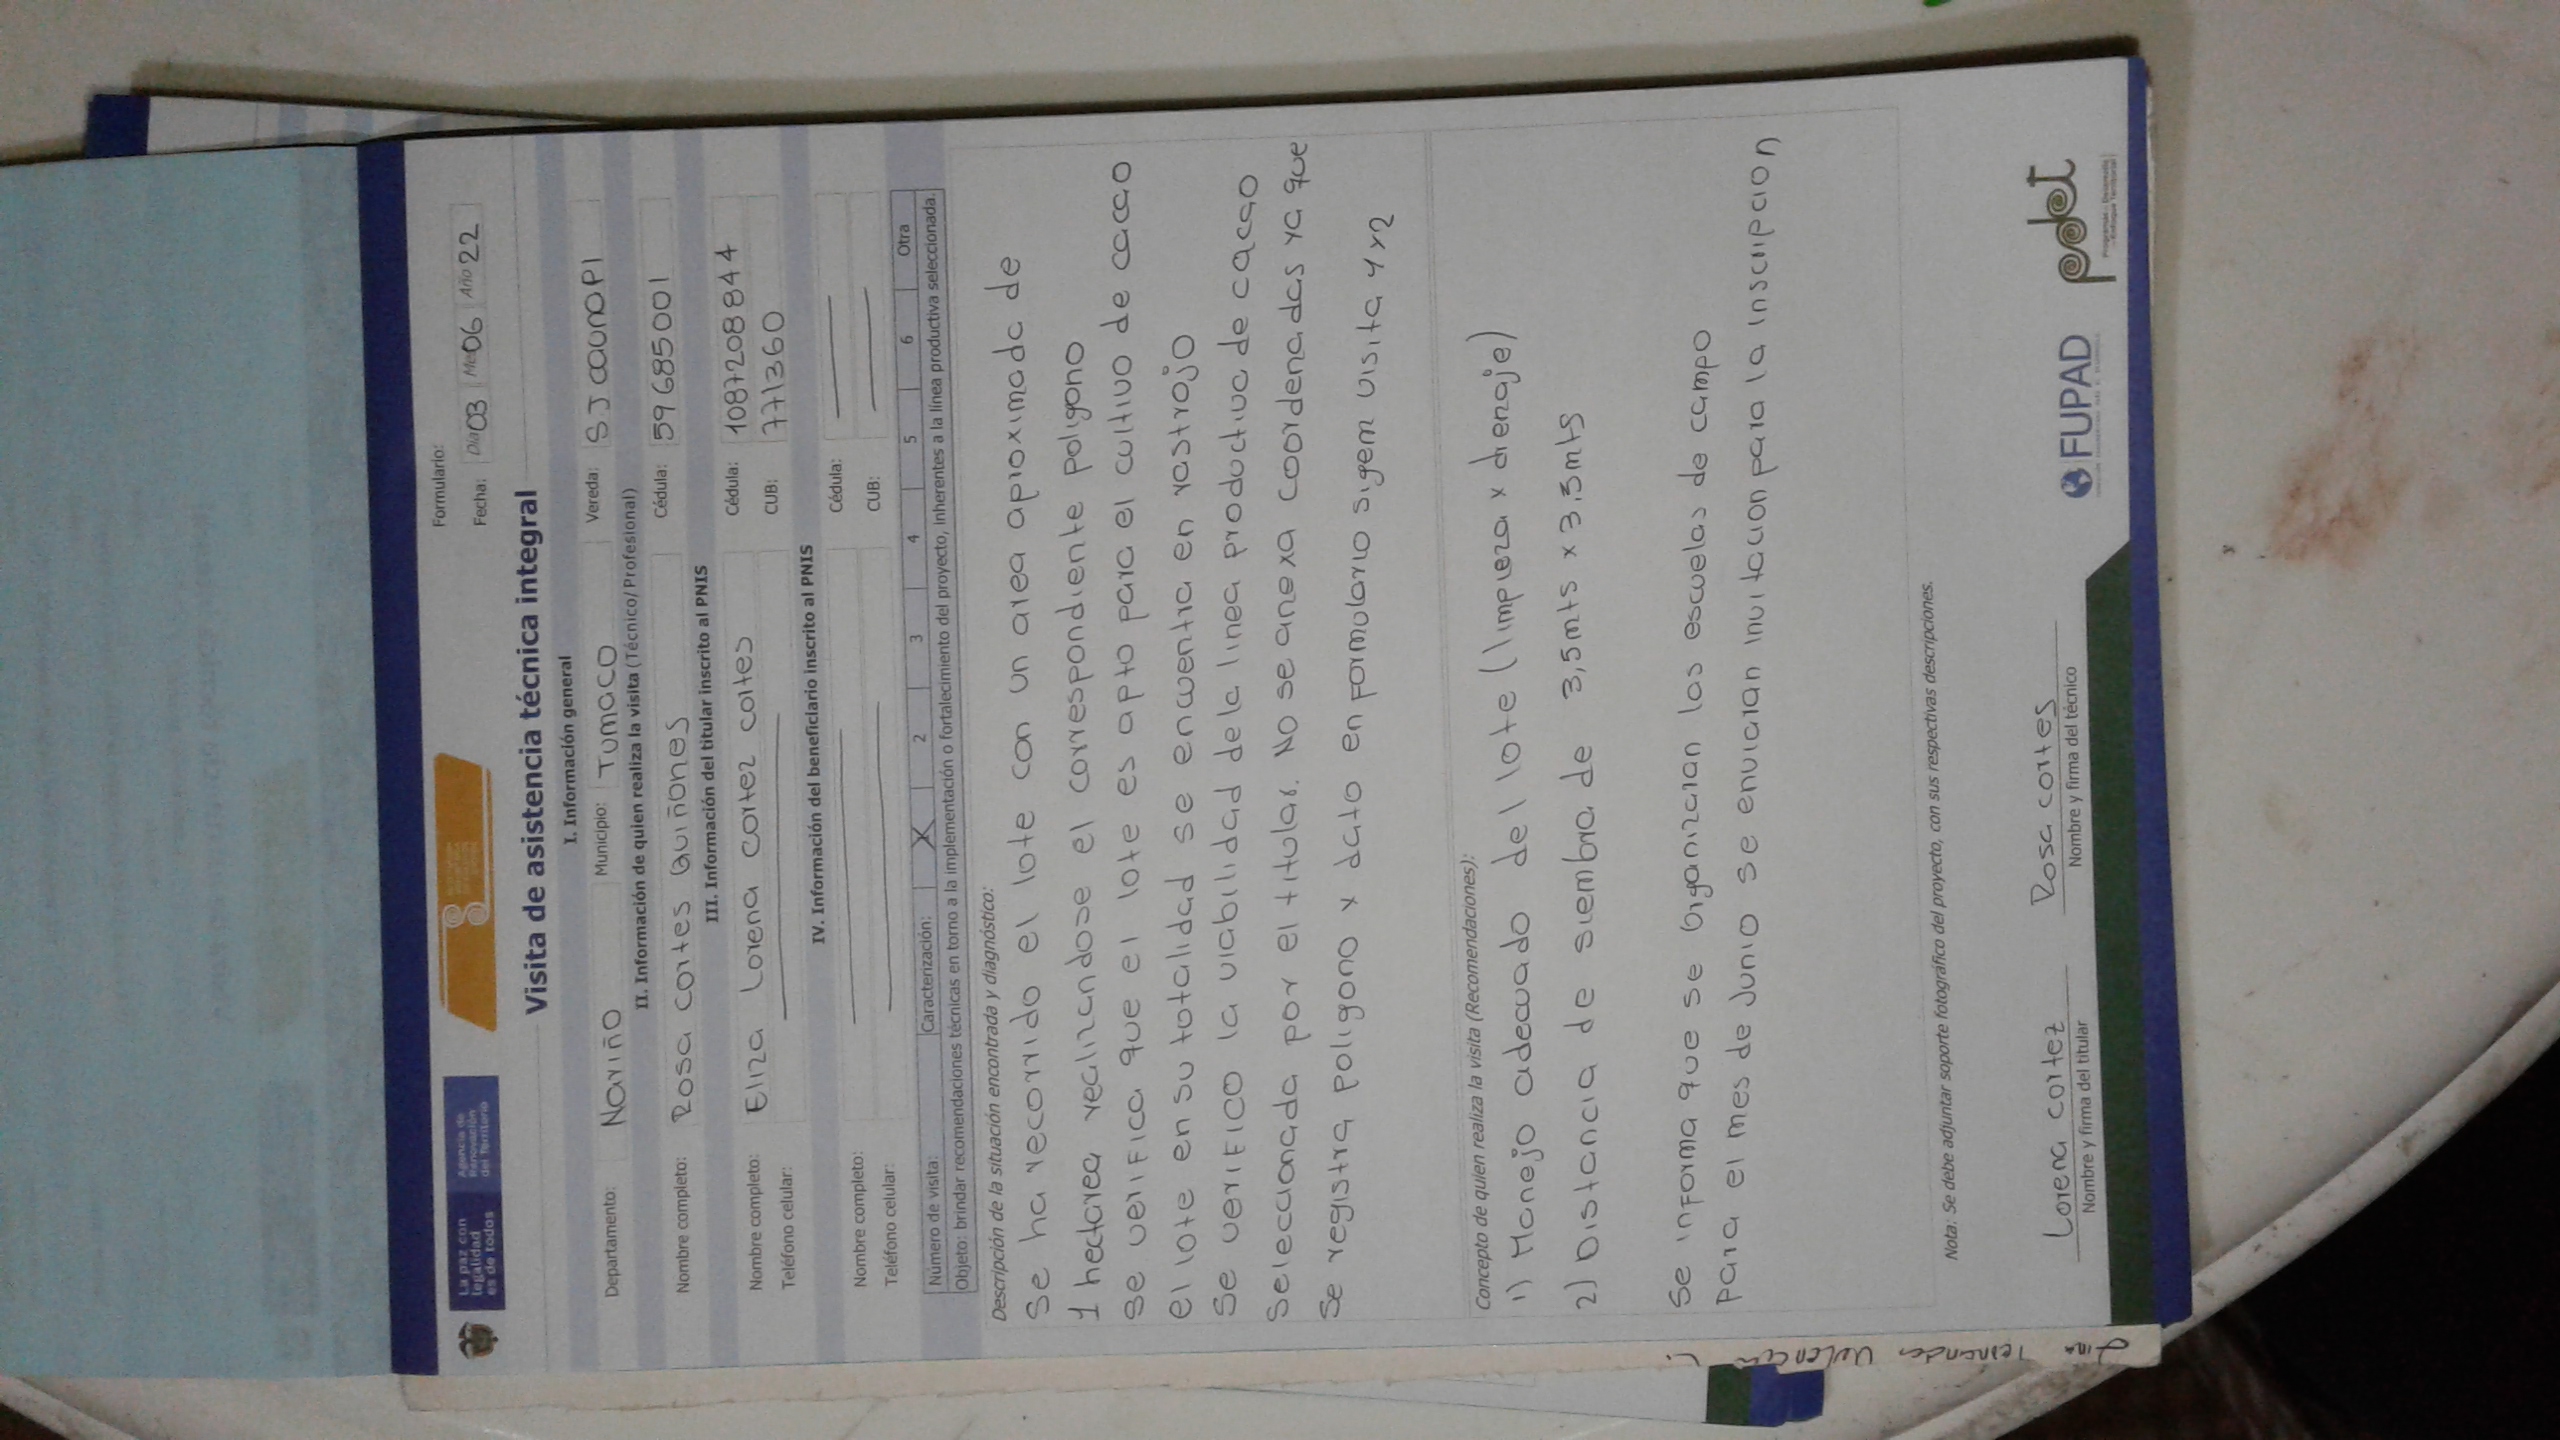 La paz con
legalidad
es de todos
Agencia de
Renovación
del Territorio
Formulario:
Fecha: Día 03 Mes 06 Año 22
Visita de asistencia técnica integral
I. Información general
Departamento: Nariño Municipio: Tumaco Vereda: SJ caunapi
II. Información de quien realiza la visita (Técnico/Profesional)
Nombre completo: Rosa cortes Quiñones Cédula: 59685001
III. Información del titular inscrito al PNIS
Nombre completo: Eliza Lorena cortez cortes Cédula: 1087208844
Teléfono celular: CUB: 771360
IV. Información del beneficiario inscrito al PNIS
Nombre completo: Cédula:
Teléfono celular: CUB:
Número de visita: Caracterización: X 2 3 4 5 6 Otra
Objeto: brindar recomendaciones técnicas en torno a la implementación o fortalecimiento del proyecto, inherentes a la línea productiva seleccionada.
Descripción de la situación encontrada y diagnóstico:
Se ha recorrido el lote con un area aproximada de
1 hectarea realizandose el correspondiente poligono
se verifica que el lote es apto para el cultivo de cacao
el lote en su totalidad se encuentra en rastrojo
Se verifico la viabilidad de la linea productiva de cacao
Seleccionada por el titular. No se anexa coordenadas ya que
Se registra poligono x dato en formulario sigem visita 4 x2
Concepto de quien realiza la visita (Recomendaciones):
1) Manejo adecuado del lote (limpieza x drenaje)
2) Distancia de siembra de 3,5mts x 3,5mts
Se informa que se organizaran las escuelas de campo
Para el mes de Junio se enviaran invitacion para la inscripcion
Nota: Se debe adjuntar soporte fotográfico del proyecto, con sus respectivas descripciones.
Lorena cortez Rosa cortes
Nombre y firma del titular Nombre y firma del técnico
FUPAD
pdet
Programas de Desarrollo
con Enfoque Territorial